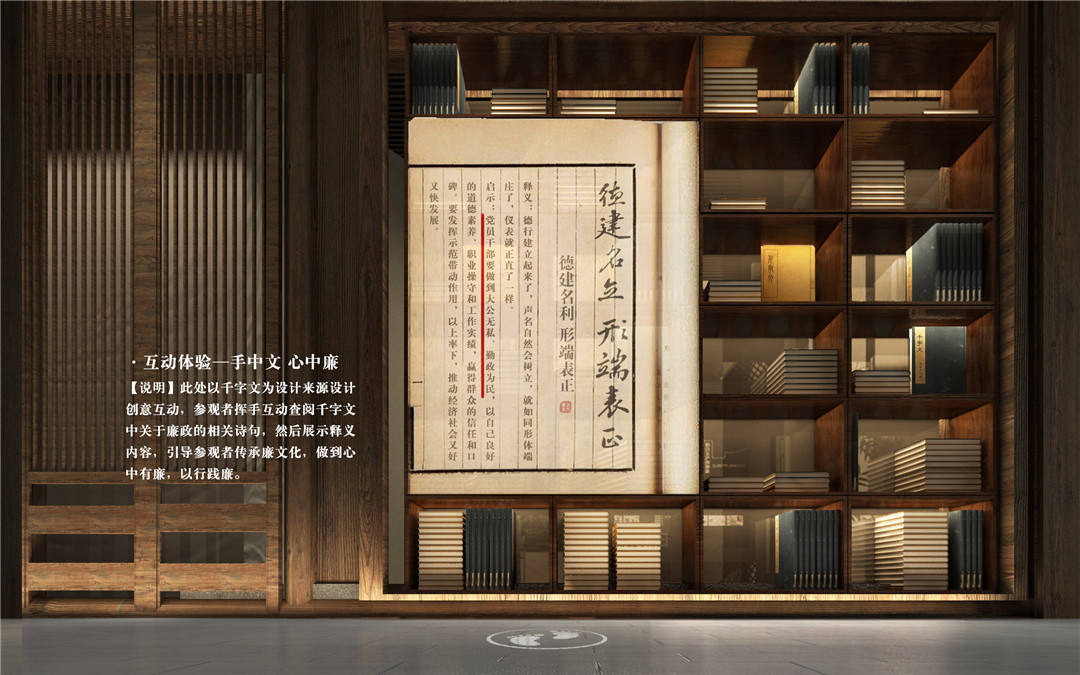 ·互动体验—手中文 心中廉
【说明】此处以千字文为设计来源设计
创意互动，参观者挥手互动查阅千字文
中关于廉政的相关诗句，然后展示释义
内容，引导参观者传承廉文化，做到心
中有廉，以行践廉。
德建名立 形端表正
德建名利 形端表正
释义：德行建立起来了，声名自然会树立，就如同形体端
庄了，仪表就正直了一样。
启示：党员干部要做到大公无私、勤政为民，以自己良好
的道德素养、职业操守和工作实绩，赢得群众的信任和口
碑。要发挥示范带动作用，以上率下，推动经济社会又好
又快发展。
千字文